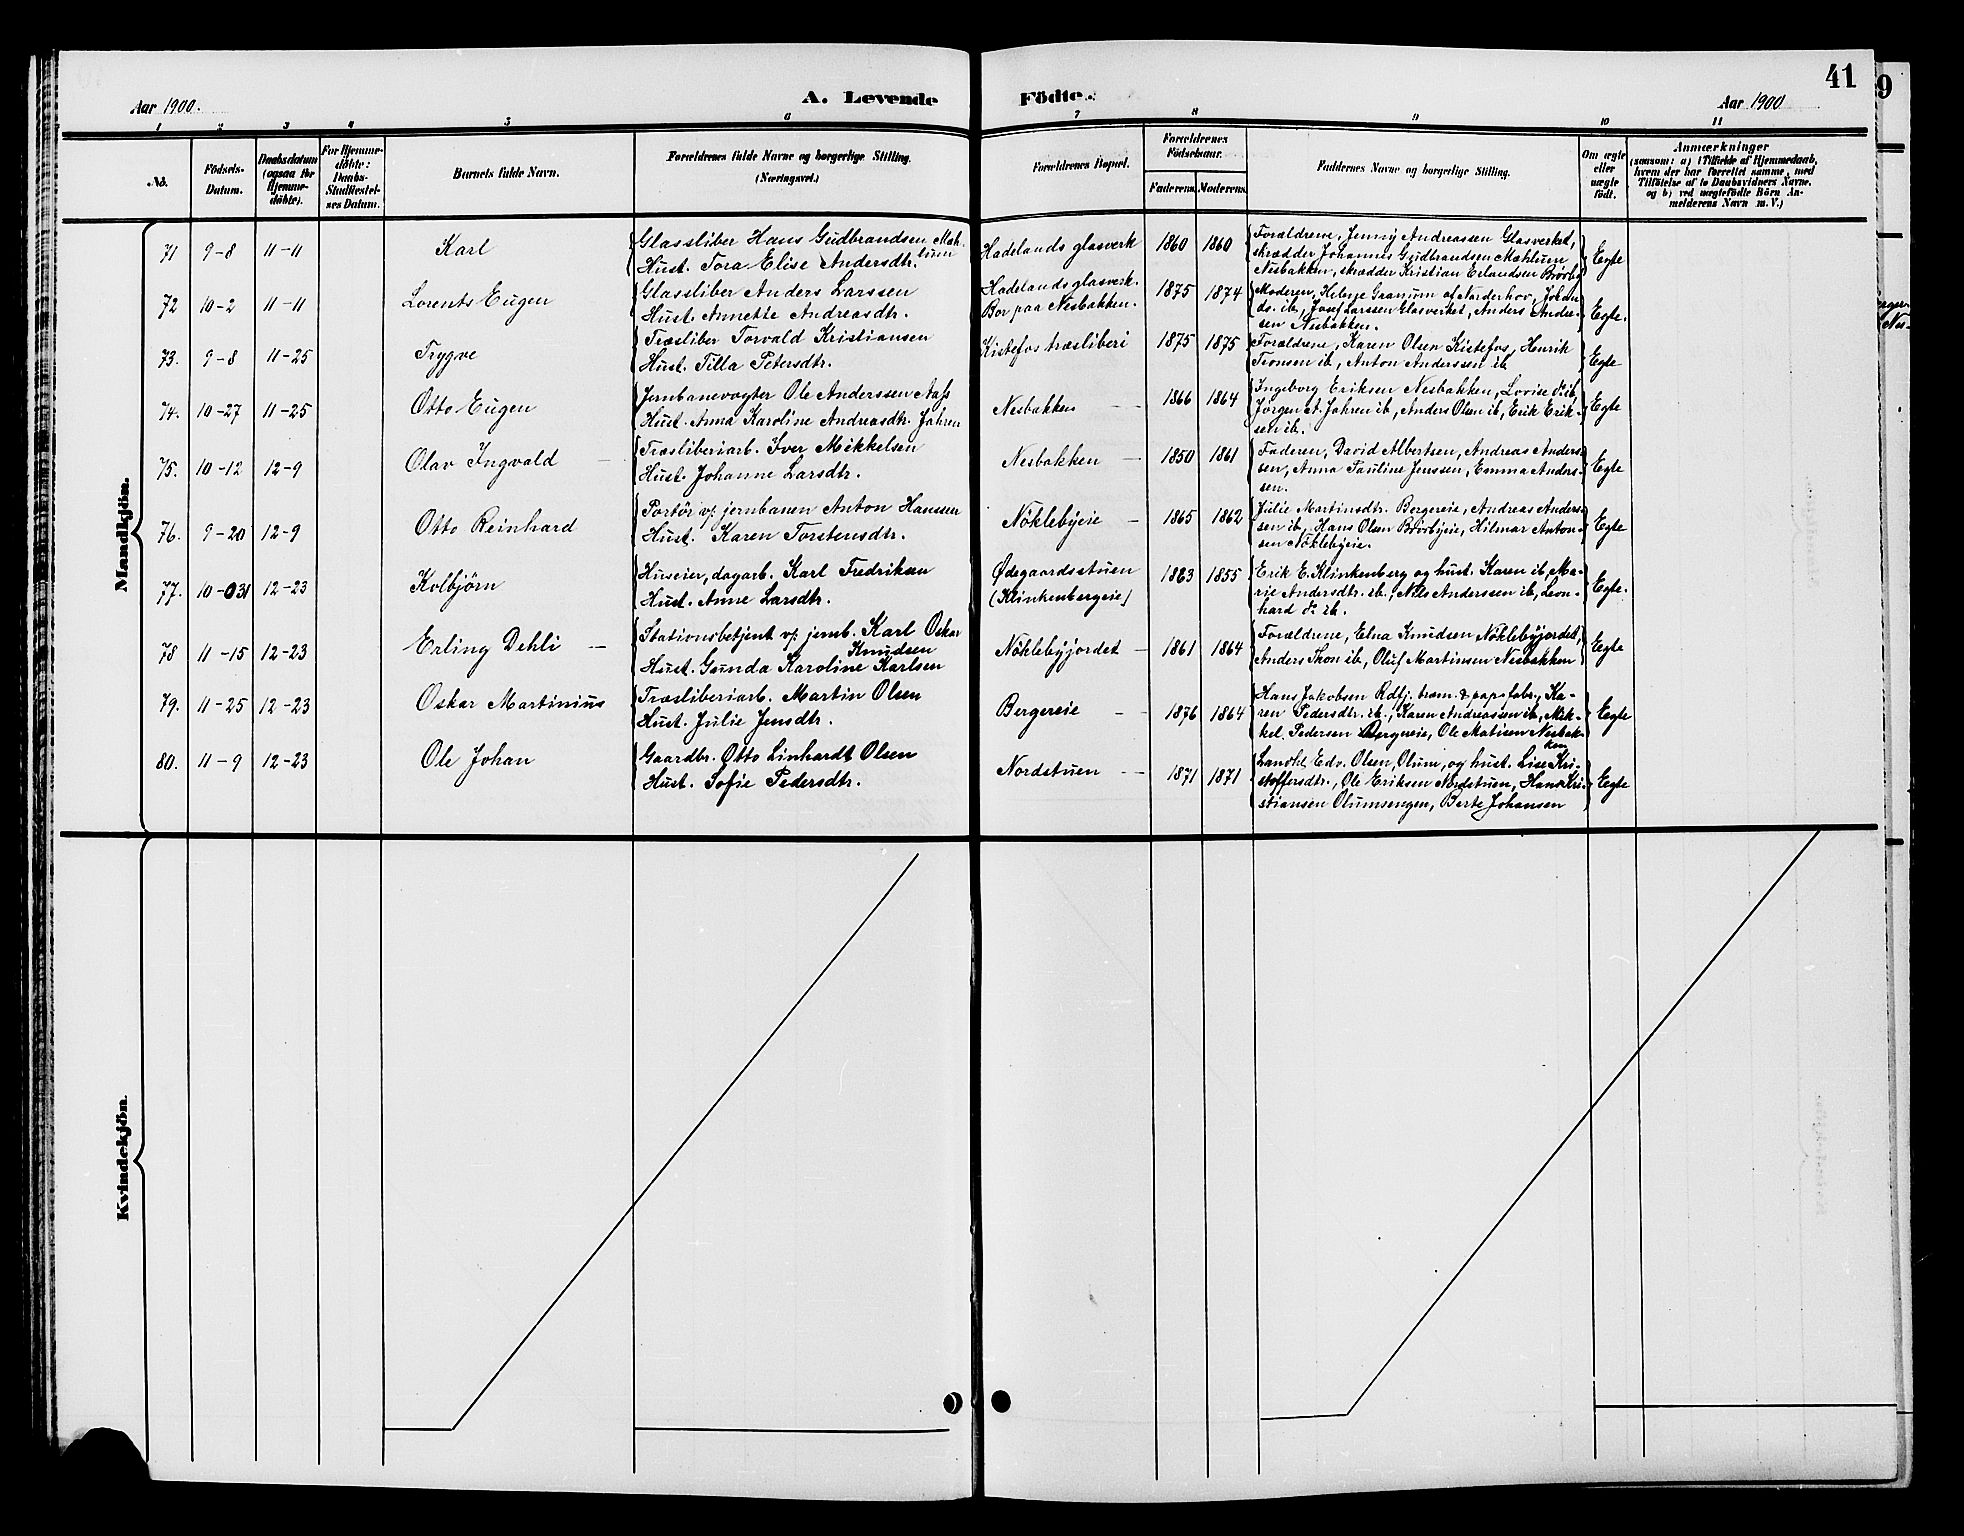 41
Aar 1900.
A. Levende
Födte.
Aar 1900
1 2 3 4 5 6 7 8 9 10 11
No.
Födsels-
Datum.
Daabsdatum
(ogsaa for
Hjemme-
döbte).
For Hjemme-
döbte:
Daabs-
Stadfæstel-
ses Datum.
Barnets fulde Navn.
Forældrenes fulde Navne og borgerlige Stilling.
(Næringsvei.)
Forældrenes Bopæl.
Forældrenes
Födselsaar.
Faderens. Moderens.
Faddernes Navne og borgerlige Stilling.
Om ægte
eller
uægte
født.
Anmærkninger
(saasom: a) i Tilfælde af Hjemmedaab,
hvem der har forrettet samme, med
Tilföielse af to Daabsvidners Navne,
og b) ved uægtefödte Börn An-
melderens Navn m. V.)
Mandkjön.
71 9-8 11-11 Karl
Glassliber Hans Gudbrandsen Mæh-
lum
Hust. Tora Elise Andersdtr.
Hadelands glasverk 1860 1860
Forældrene, Jenny Andreassen Glasverket,
skrædder Johannes Gudbrandsen Mæhlum
Nesbakken, skrædder Kristian Erlandsen Brørby
Egte
72 10-2 11-11 Lorents Eugen
Glassliber Anders Larssen
Hust. Annette Andreasdtr.
Hadelands glasverk.
Bor paa Nesbakken.
1875 1874
Moderen, Helene Granum af Norderhov, Johan
do. ib., Josef Larssen Glasverket, Anders Andre-
sen Nesbakken.
Egte.
73. 9-8 11-25 Trygve
Træsliber Torvald Kristiansen
Hust. Tilla Petersdtr.
Kistefos træsliberi 1875 1875
Forældrene, Karen Olsen Kistefos, Henrik
Tronsen ib., Anton Anderssen ib.
Egte
74. 10-27 11-25 Otto Eugen
Jernbanevogter Ole Anderssen Aas
Hust. Anna Karoline Andreasdtr. Jahren
Nesbakken 1866 1864
Ingeborg Eriksen Nesbakken, Lovise do. ib.,
Jörgen A. Jahren ib., Anders Olsen ib., Erik Erik-
sen ib.
Egte
75. 10-12 12-9 Olav Ingvald
Træsliberiarb. Iver Mikkelsen
Hust. Johanne Larsdtr.
Nesbakken 1850 1861
Faderen, David Albertsen, Andreas Anders-
sen, Anna Pauline Jenssen, Emma Anders-
sen.
Egte
76. 9-20 12-9 Otto Reinhard
Portör v/ jernbanen Anton Hanssen
Hust. Karen Torstensdtr.
Nöklebyeie 1865 1862
Julie Martinsdtr. Bergereie, Andreas Anders-
sen ib., Hans Olsen Brörbyeie, Hilmar Anton-
sen Nöklebyeie.
Egte
77. 10-31 12-23 Kolbjörn
Huseier, dagarb. Karl Fredriksen
Hust. Anne Larsdtr.
Ødegaardsstuen
(Klinkenbergeie)
1863 1855
Erik E. Klinkenberg og hust. Karen ib., Ma-
rie Andersdtr. ib., Nils Anderssen ib., Leon-
hard do. ib.
Egte.
78 11-15 12-23 Erling Dehli
Stationsbetjent v/ jernb. Karl Oskar
Knudsen
Hust. Gunda Karoline Karlsen
Nöklebyjordet 1861 1864
Forældrene, Elna Knudsen Nöklebyjordet,
Anders Thon ib., Oluf Martinsen Nesbakken
Egte
79. 11-25 12-23 Oskar Martinius
Træsliberiarb. Martin Olsen
Hust. Julie Jensdtr.
Bergereie 1876 1864
Hans Jakobsen Rdfj. træm. & papfabr., Ka-
ren Pedersdtr. ib., Karen Andreassen ib., Mik-
kel Pedersen Bergereie, Ole Matisen Nesbak-
ken
Egte
80. 11-9 12-23 Ole Johan
Gaardbr. Otto Linhardt Olsen
Hust. Sofie Pedersdtr.
Nordstuen 1871 1871
Landh. Edv. Olsen, Olum, og hust. Lise Kri-
stoffersdtr., Ole Eriksen Nordstuen, Hans Kri-
stiansen Olumsengen, Berte Johansen
Egte
Kvindekjön.
9